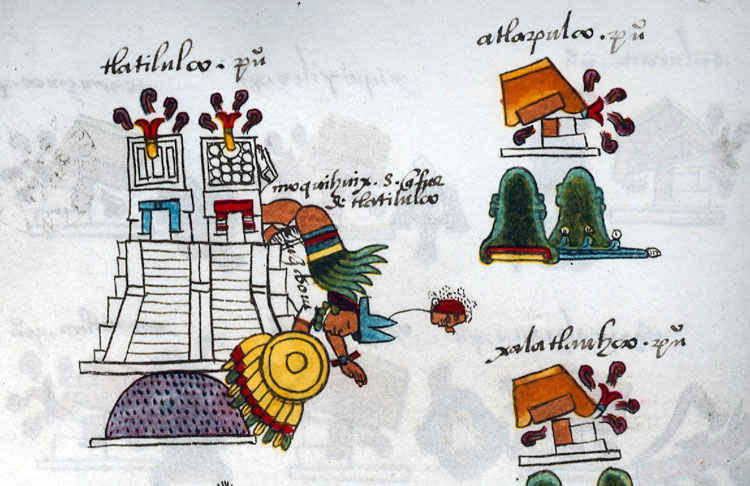 tlatilulco . pũ
moquihuix . S. q̃ fue
de tlatilulco
atlapulco . pũ
xalatlauhco . pũ